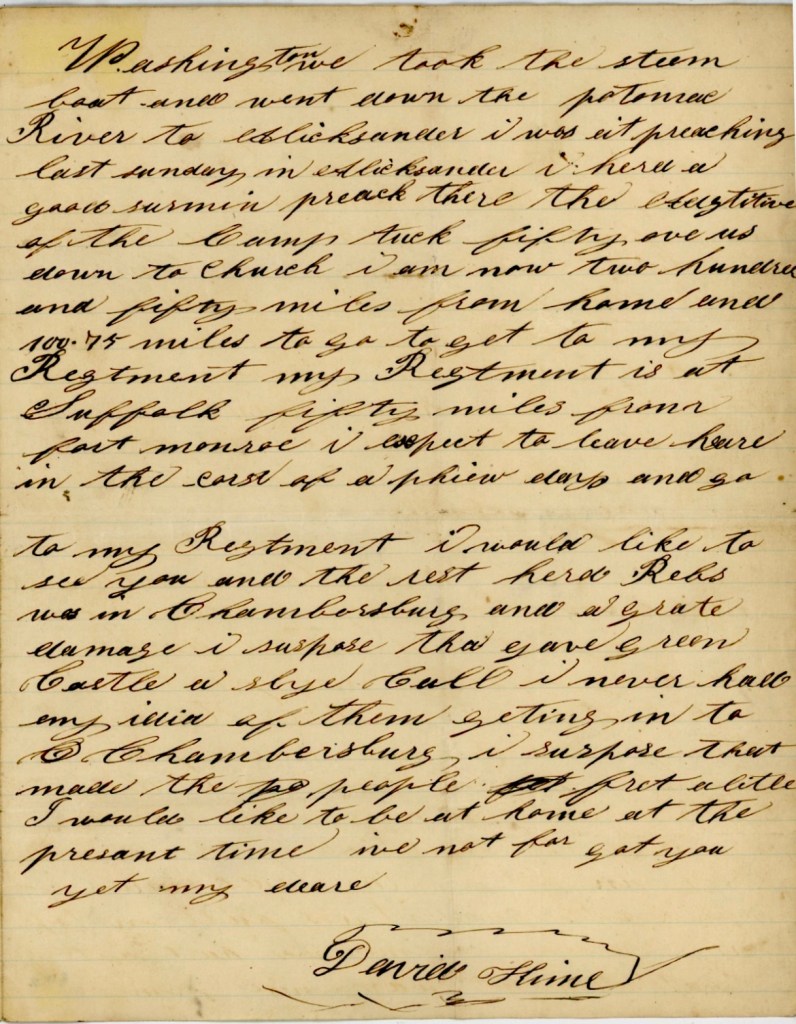 Washington we took the steem
boat and went down the potomac
River to Allicksander i was eit preaching
last sunday in Allicksander i herd a
good surmin preach there the
of the Camp tuck fifty ove us
down to Church i am now two hundred
and fifty miles from home and
100-75 miles to go to get to my
Regtment my Regtment is at
Suffolk fifty miles from
fort monroe i expect to leave heare
in the corse of a phiew days and go
to my Regtment i would like to
see you and the rest herd Rebs
was in Chambersburg and a grate
damage i suspose tha gave green
Castle a slye Call i never had
eny idia of them geting in to
C Chambersburg i suspose that
made the pe people fret alitle
I would like to be at home at the
presant time ive not for got you
yet my deare
David Hime